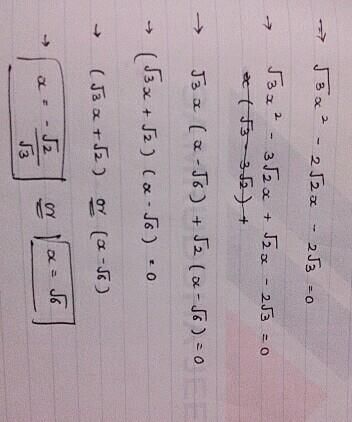 ⇒ √3x² - 2√2x - 2√3 = 0
→ √3x² - 3√2x + √2x - 2√3 = 0
x (√3 - 3√2) +
→ √3x (x - √6) + √2 (x - √6) = 0
(√3x + √2) (x - √6) = 0
→ (√3x + √2) or (x - √6)
→ x = -√2/√3 or x = √6